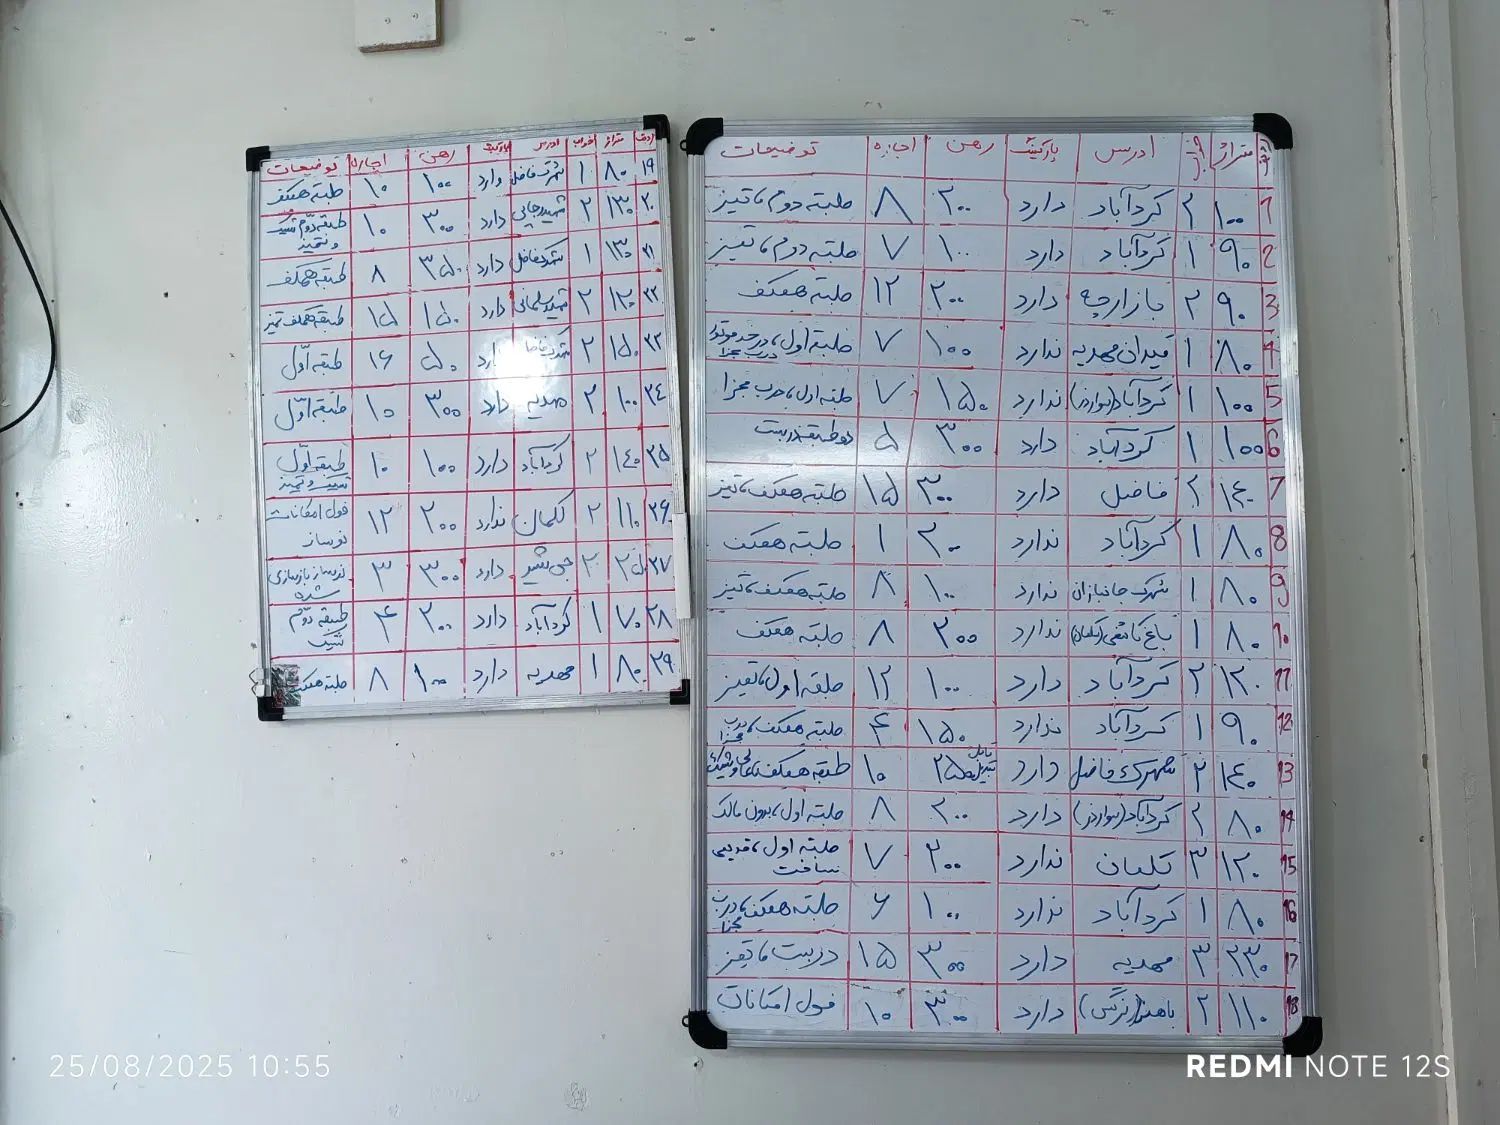 ردیف متراژ خواب ادرس پارکینگ رهن اجاره توضیحات
۱۹ ۸۰ ۱ شهرک فاضل دارد ۱۰۰ ۱۰ طبقه همکف
۲۰ ۱۳۰ ۲ شهید رجایی دارد ۳۰۰ ۱۰ طبقه دوّم شیک و تمیز
۲۱ ۱۳۰ ۱ شهرک فاضل دارد ۳۵۰ ۸ طبقه همکف
۲۲ ۱۲۰ ۲ شهید سلمانی دارد ۱۵۰ ۱۵ طبقه همکف تمیز
۲۳ ۱۵۰ ۲ شهرک دارد ۵۰ ۱۶ طبقه اوّل
۲۴ ۱۰۰ ۲ مهدیه دارد ۳۰۰ ۱۰ طبقه اوّل
۲۵ ۱۴۰ ۲ کردآباد دارد ۱۰۰ ۱۰ طبقه اوّل شیک و تمیز
۲۶ ۱۱۰ ۲ کلمان ندارد ۲۰۰ ۱۲ فول امکانات نوساز
۲۷ ۲ جی شیر دارد ۳۰۰ ۳ نوساز بازسازی شده
۲۸ ۷۰ ۱ کردآباد دارد ۲۰۰ ۴ طبقه دوّم شیک
۲۹ ۸۰ ۱ مهدیه دارد ۱۰۰ ۸ طبقه همکف
ردیف متراژ خواب ادرس پارکینگ رهن اجاره توضیحات
1 ۱۰۰ ۲ کردآباد دارد ۲۰۰ ۸ طبقه دوم، تمیز
2 ۹۰ ۱ کردآباد دارد ۱۰۰ ۷ طبقه دوم، تمیز
3 ۹۰ ۲ بازارچه دارد ۲۰۰ ۱۲ طبقه همکف
4 ۸۰ ۱ میدان مهدیه ندارد ۱۰۰ ۷ طبقه اول، درب مجزا
5 ۱۰۰ ۱ کردآباد ندارد ۱۵۰ ۷ طبقه اول، درب مجزا
6 ۱۰۰ ۱ کردآباد دارد ۳۰۰ ۵ دو طبقه دربست
7 ۱۴۰ ۲ فاضل دارد ۳۰۰ ۱۵ طبقه همکف، تمیز
8 ۸۰ ۱ کردآباد ندارد ۲۰۰ ۱ طبقه همکف
9 ۸۰ ۱ شهرک جانبازان ندارد ۱۰۰ ۸ طبقه همکف، تمیز
10 ۸۰ ۱ باغ ندارد ۲۰۰ ۸ طبقه همکف
11 ۱۲۰ ۲ کردآباد دارد ۱۰۰ ۱۲ طبقه اول، تمیز
12 ۹۰ ۱ کردآباد ندارد ۱۵۰ ۴ طبقه همکف، درب مجزا
13 ۱۴۰ ۲ شهرک فاضل دارد ۲۵۰ قابل تبدیل ۱۰ طبقه همکف
14 ۸۰ ۲ کردآباد دارد ۲۰۰ ۸ طبقه اول، بدون مالک
15 ۱۲۰ ۳ کلمان ندارد ۲۰۰ ۷ طبقه اول، قدیمی ساخت
16 ۸۰ ۱ کردآباد ندارد ۱۰۰ ۶ طبقه همکف، درب مجزا
17 ۲۳۰ ۳ مهدیه دارد ۳۰۰ ۱۵ دربست، تمیز
18 ۱۱۰ ۲ باهنر(نرگس) دارد ۳۰۰ ۱۰ فول امکانات
25/08/2025 10:55
REDMI NOTE 12S